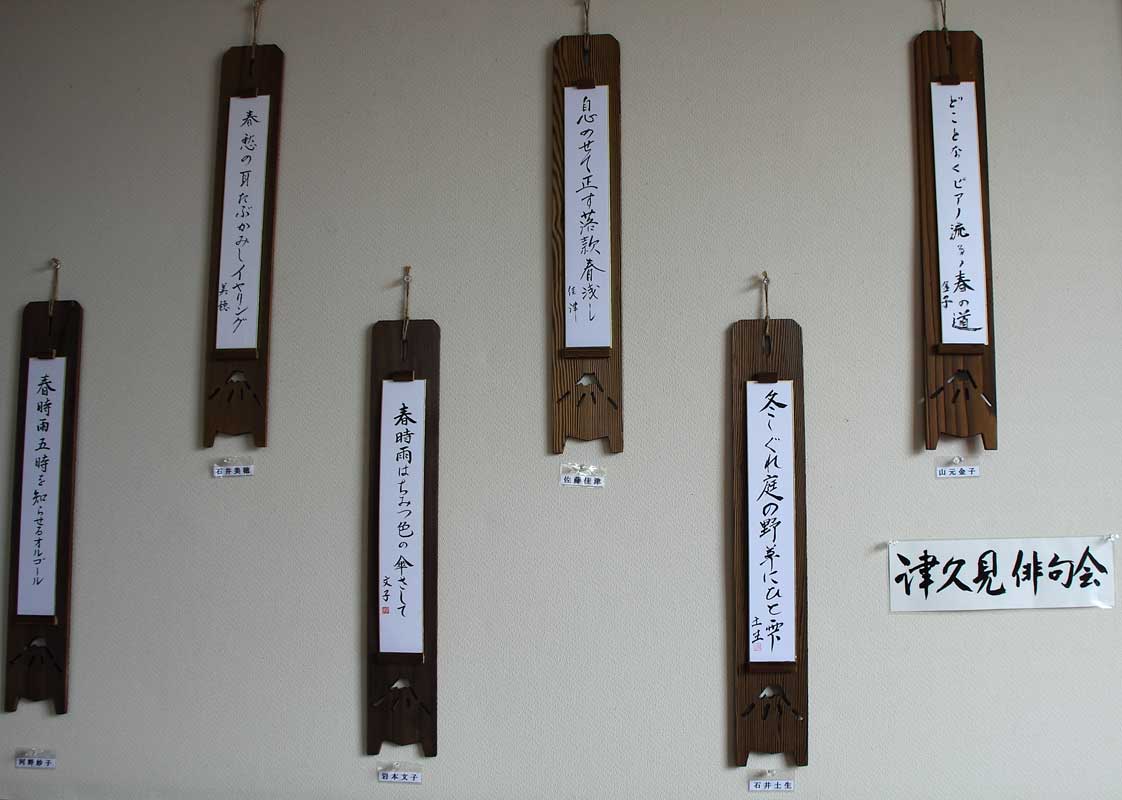 どことなくピアノ流るゝ春の道
金子
山元金子
津久見俳句会
息のせて正す落款春浅し
佳津
佐藤佳津
冬しぐれ庭の野草にひと雫
土生
石井土生
春愁の耳たぶかみしイヤリング
美穂
石井美穂
春時雨はちみつ色の傘さして
文子
岩本文子
春時雨五時を知らせるオルゴール
河野紗子